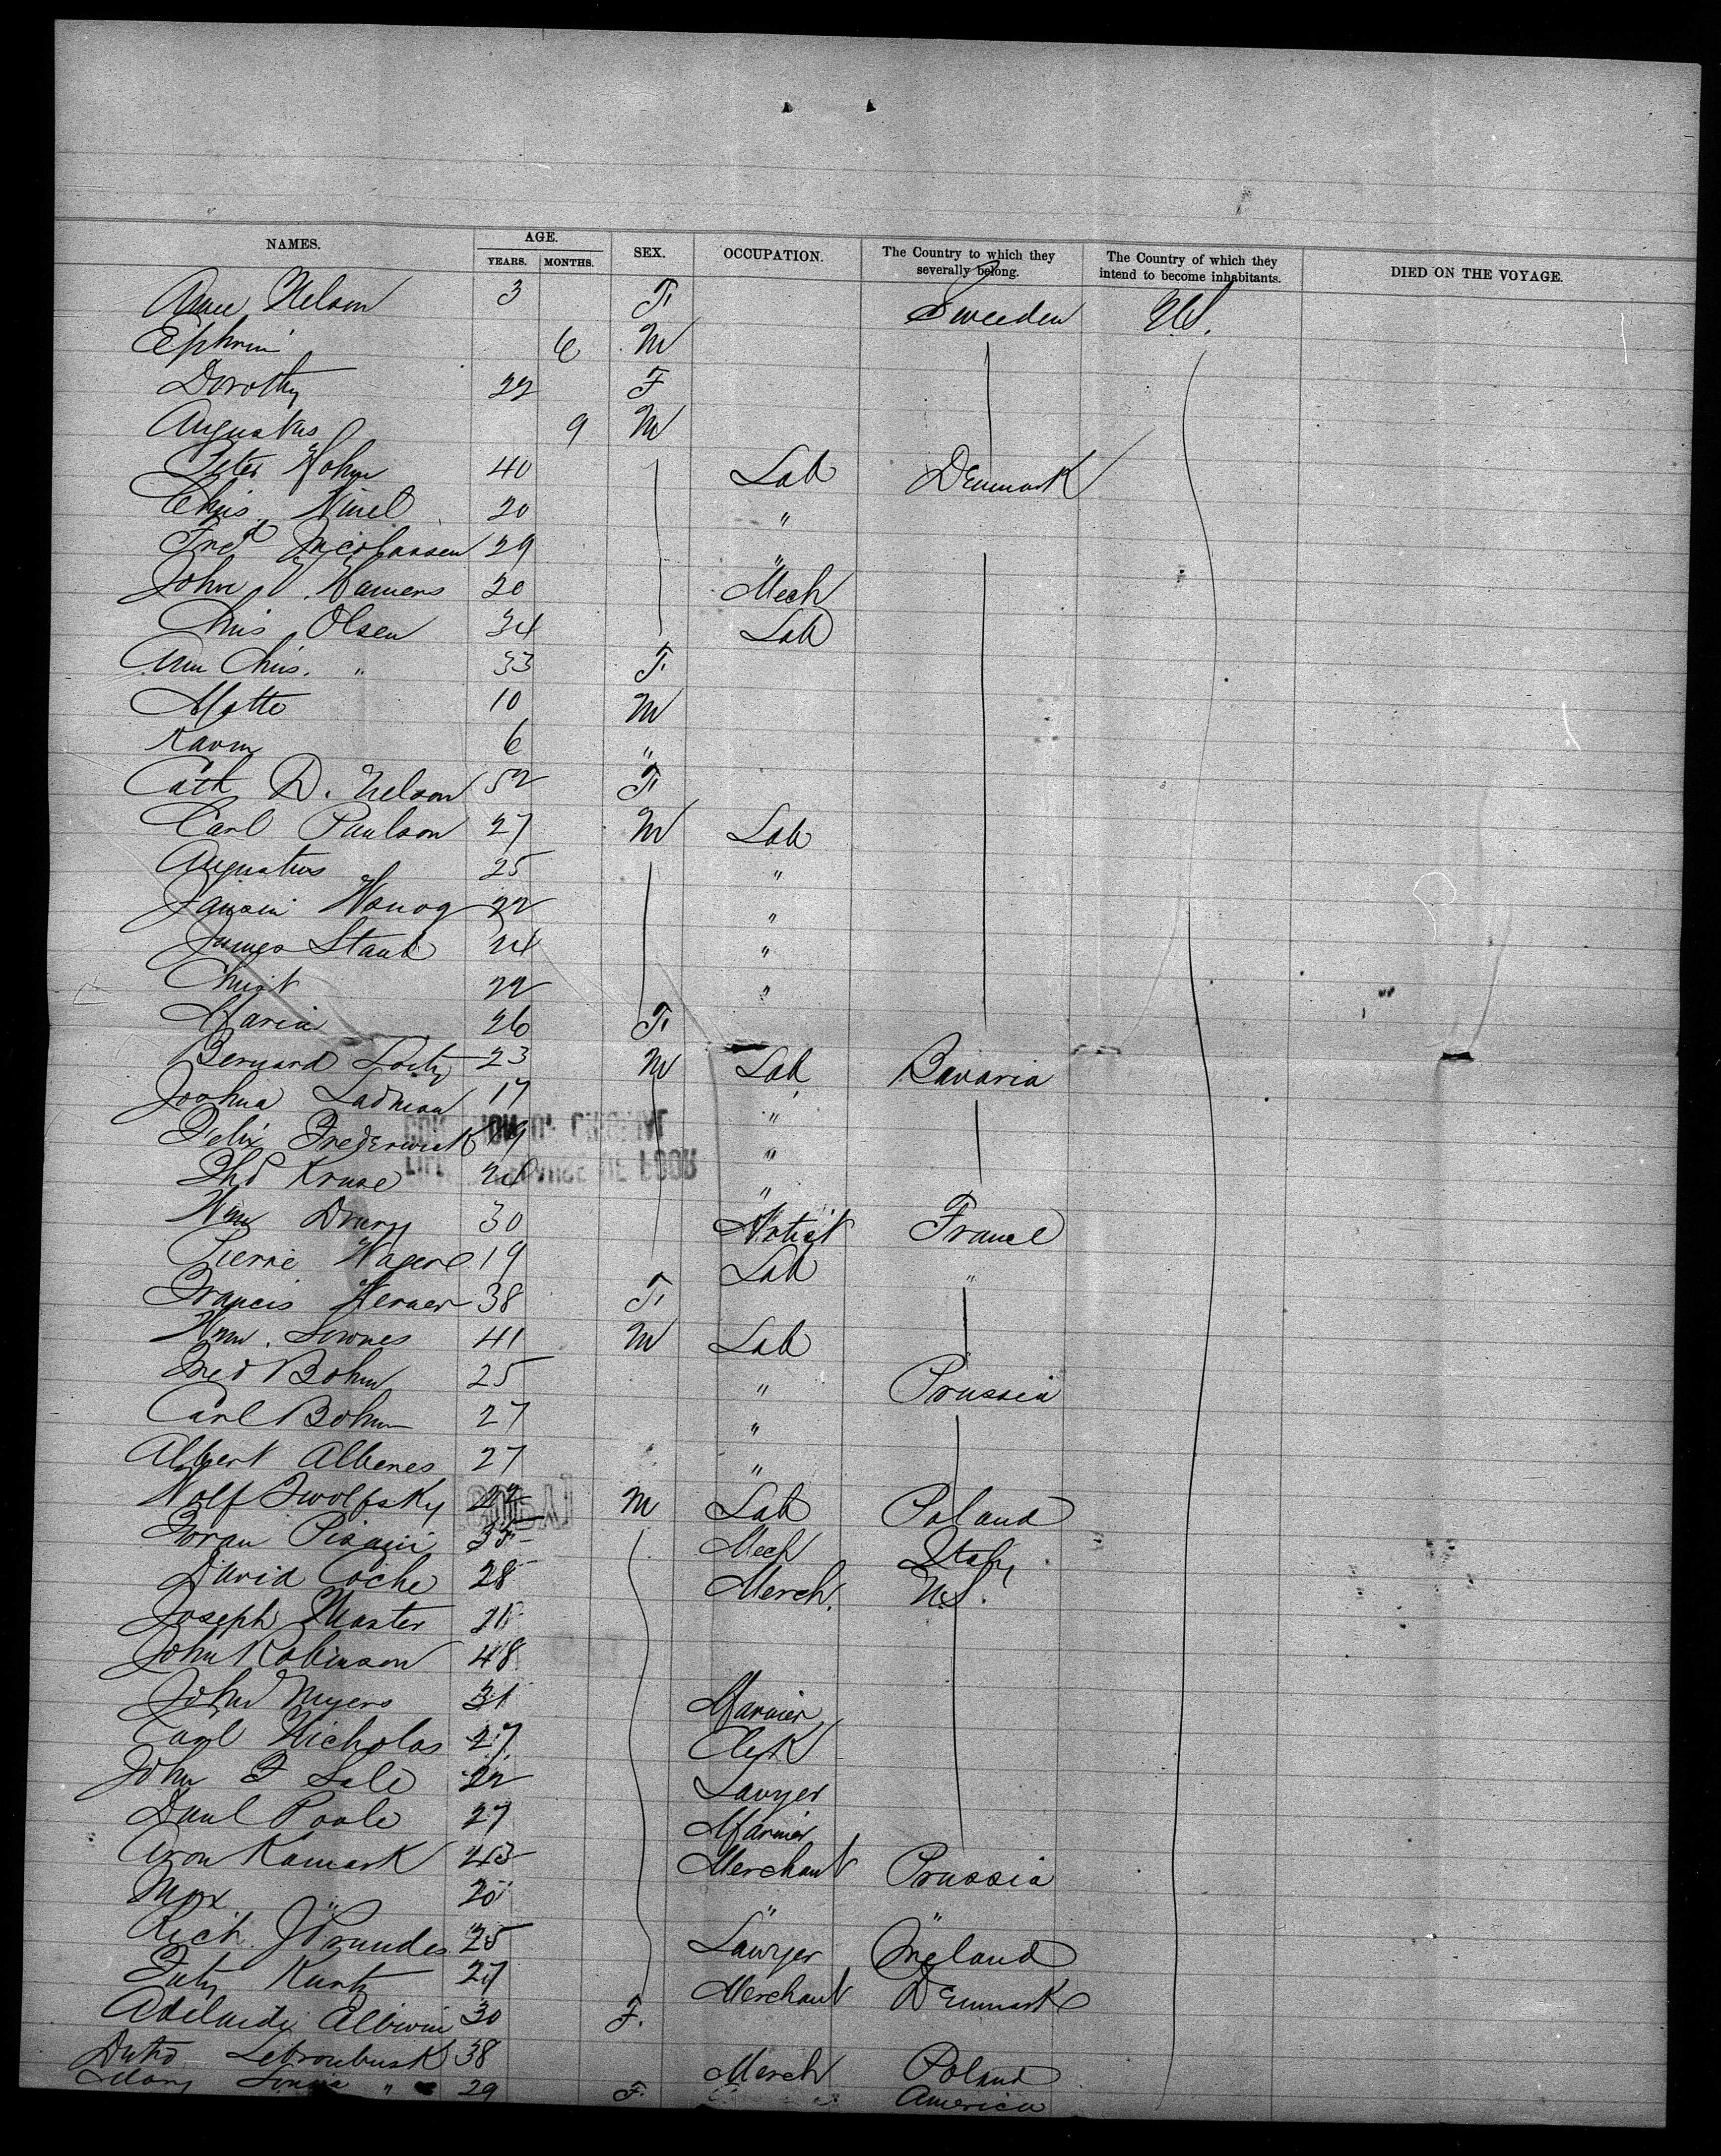 NAMES. AGE. SEX. OCCUPATION. The Country to which they severally belong. The Country of which they intend to become inhabitants. DIED ON THE VOYAGE.
YEARS. MONTHS.
Anne Nelson 3 F. Sweeden U.S.
Ephrim 6 M
Dorothy 22 F
Augustus 9 M
Peter Hohn 40 Lab Denmark
Chris 20 "
Fred 29 "
John 20 Mech
Chris Olsen 34 Lab
Ann Chris. " 33 F.
Matto 10 M
Karm 6 "
Cath D. Nelson 52 F.
Carl Paulson 27 M Lab
Augustus 25 "
Hanog 22 "
James Staub 24 "
Christ 22 "
Maria 26 F.
Bernard 23 M Lab Bavaria
Joshua Ladman 17 "
Felix Frederick 19 "
Thd Kruse 24 "
Wm Drury 30 Artist France
Pierre 19 Lab "
Francis Werner 38 F.
Wm. Lownes 41 M Lab
Fred Bohm 25 " Prussia
Carl Bohm 27 "
Albert Albenes 27 "
Wolf Zwolfsky 22 M Lab Poland
Pisani 35 Mech Italy
David Coche 28 Merch. U.S.
Joseph Master
John Robinson 48
John Myers 31 Marier
Carl Nicholas 27 Clerk
John F Sale 22 Lawyer
Danl Poole 27 Marier
Aron Kamark 43 Merchant Prussia
Max " 20 " "
Rich. J Prundes 25 Lawyer Ireland
Kurtz 27 Merchant Denmark
Adelaide 30 F.
38 Merch Poland
Mary Louisa " 29 F. America